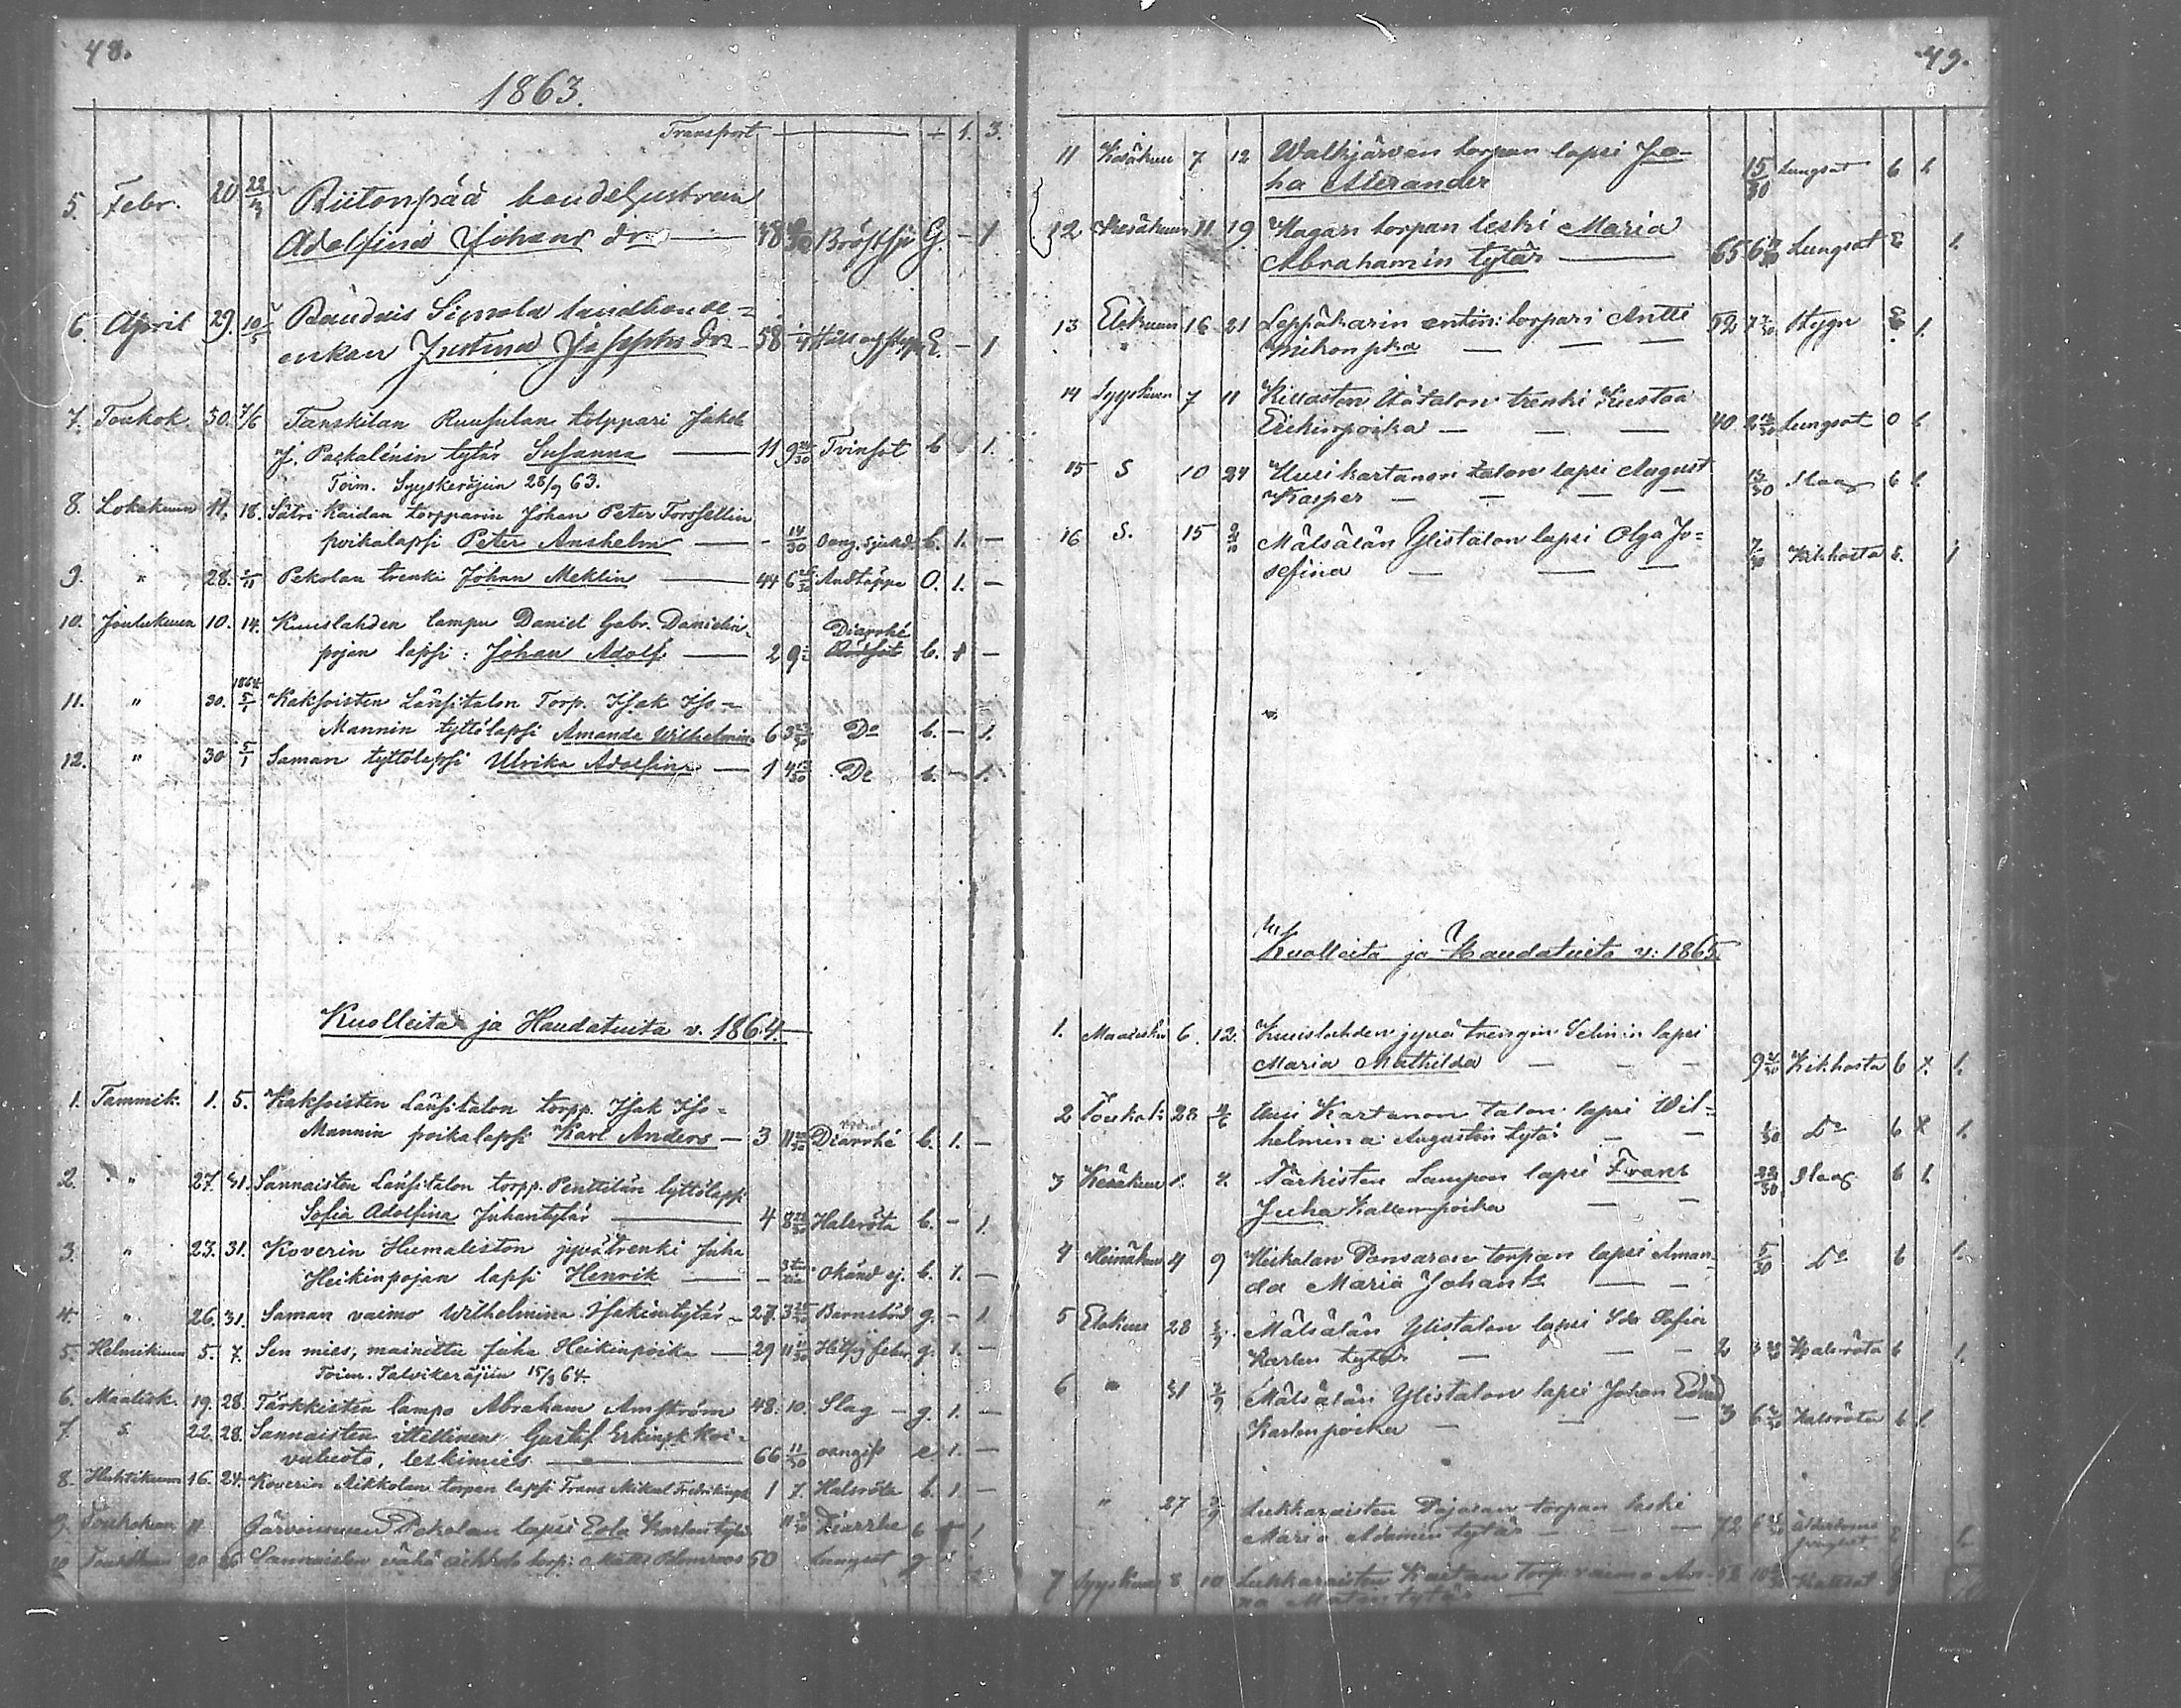 48.
1863.
Transport — + 1. 3.
5. Febr. 20 22/3 Riitonpää bondehustrun
Adolfina Johans dr — 48 Bröstsju G. - 1
6. April 29. 10/5 Räudnis Sipola landbonde-
enkan Justina Josephs dr 58 Håll och styng E. - 1
7. Toukok. 30. 7/6 Tanskilan Ruusulan torppari Jakob
J. Paskalénin tytär Susanna — 11 9 Tvinsot b 1.
Toim. Syyskäräjiin 28/9 63.
8. Lokakuun 11. 18. Sätri Kaidan torpparin Johan Peter Forssellin
poikalapsi Peter Anshelm — - 14/30 oang. sjukd. b. 1. —
9. " 28. Pekolan trenki Johan Meklin — 44 6 Andtäppa O. 1. —
10. Joulukuun 10. 14. Kuuslahden lampu Daniel Gabr. Danielin
Diarrhé
pojan lapsi: Johan Adolf — 2 9 Rödsot b. 1 —
1864
11. " 30. 5/1 Kaksoisten Länsitalon Torp. Isak Iso-
Mannin tyttölapsi Amanda Wilhelmin. 6 3 Do b. — 1.
12. " 30 5/1 Saman tyttölapsi Ulrika Adolfina — 1 4 Do b. — 1.
Kuolleita ja Haudatuita v. 1864.
1. Tammik. 1. 5. Kaksoisten Länsitalon torpp. Isak Iso-
Mannin poikalapsi Karl Anders — 3 11 Diarrhé b. 1. —
2. " 27. 31. Sannaisten Länsitalon torpp. Penttilän tyttölapsi
Sofia Adolfina Juhantytär — 4 8 Halsröta b. - 1.
3. " 23. 31. Koverin Humaliston jyvätrenki Juha
Heikinpojan lapsi Henrik — - okänd sj. b. 1. —
4. " 26. 31. Saman vaimo Wilhelmina Isakintytär - 27 3 Barnsbörd g. - 1
5. Helmikuun 5. 7. Sen mies, mainittu Juha Heikinpoika — 29 11 Hitsig feber g. 1. —
Toim. Talvikäräjiin 15/3 64.
6. Maalisk. 19. 28. Tärkkisten lampo Abraham Amström 48. 10. Slag - g. 1. —
7. S. 22. 28. Sannaisten ittellinen Gustaf Erkinpk Koi-
vuluoto, leskimies — 66 11/30 oangifv e 1. —
8. Huhtikuun 16. 24. Koverin Mikkolan torpan lapsi Frans Mikael 1 7. Halsröta b. 1. —
9. Toukokuun 11 Järvensuun Pekolan lapsi Eola Karlentytär 11 Diarrhe b 1
10 Toukokuun 20 26 Sannaisten vähä torp: Matts 50 Lungsot g 1
49.
11 Kesäkuun 7 12 Walkjärven torpan lapsi Jo-
ha Alexander 15/30 Lungsot b 1
12 Kesäkuun 11 19 Hagan torpan leski Maria
Abrahamin tytär — 65 6 Lungsot E 1.
13 Elokuun 16 21 Leppäkarin entin: torpari Antti
Mikonpka — — — 52 7 Stygn E. 1.
14 Syyskuun 7 11 Killasten Ylätalon trenki Kustaa
Erikinpoika — — — 40 2 Lungsot O 1
15 S 10 24 Uusikartanon talon lapsi August
Kasper — — — 13/30 Slag b 1
16 S. 15 Mälsälän Ylistalon lapsi Olga Jo-
sefina — — — 7/30 Kikhosta b. 1
Kuolleita ja Haudatuita v: 1865
1. Maalisku 6. 12. Kuuslahden jyvä trengin Selinin lapsi
Maria Mathilda — — — 9 Kikhosta b 1.
2 Toukok: 28 Uusi Kartanon talon lapsi Wil-
helmina Augustin tytär — — 1/30 Do b 1.
3 Kesäkuu 1. 4. Tärkisten Lampon lapsi Frans
Juha Kallenpoika — — 22/30 Slag b 1
4 Heinäkuu 4 9 Heikolan Pansaren torpan lapsi Aman-
da Maria Johan ts — — 5/30 Do b 1.
5 Elokuu 28 Mälsälän Ylistalon lapsi Ida Sofia
Karlen tytär — — — 2 3 Halsröta b 1.
6 " 31 Mälsälän Ylistalon lapsi Johan Edvard
Karlenpoika — — — 3 6 Halsröta b 1
" 27 Lukkaraisten Pajasan torpan leski
Maria Adamin tytär — — — 72 6 Ålderdoms E 1.
7 Syyskuu 8 10 Lukkaraisten Kaitan Torp: vaimo An-
na Matintytär —